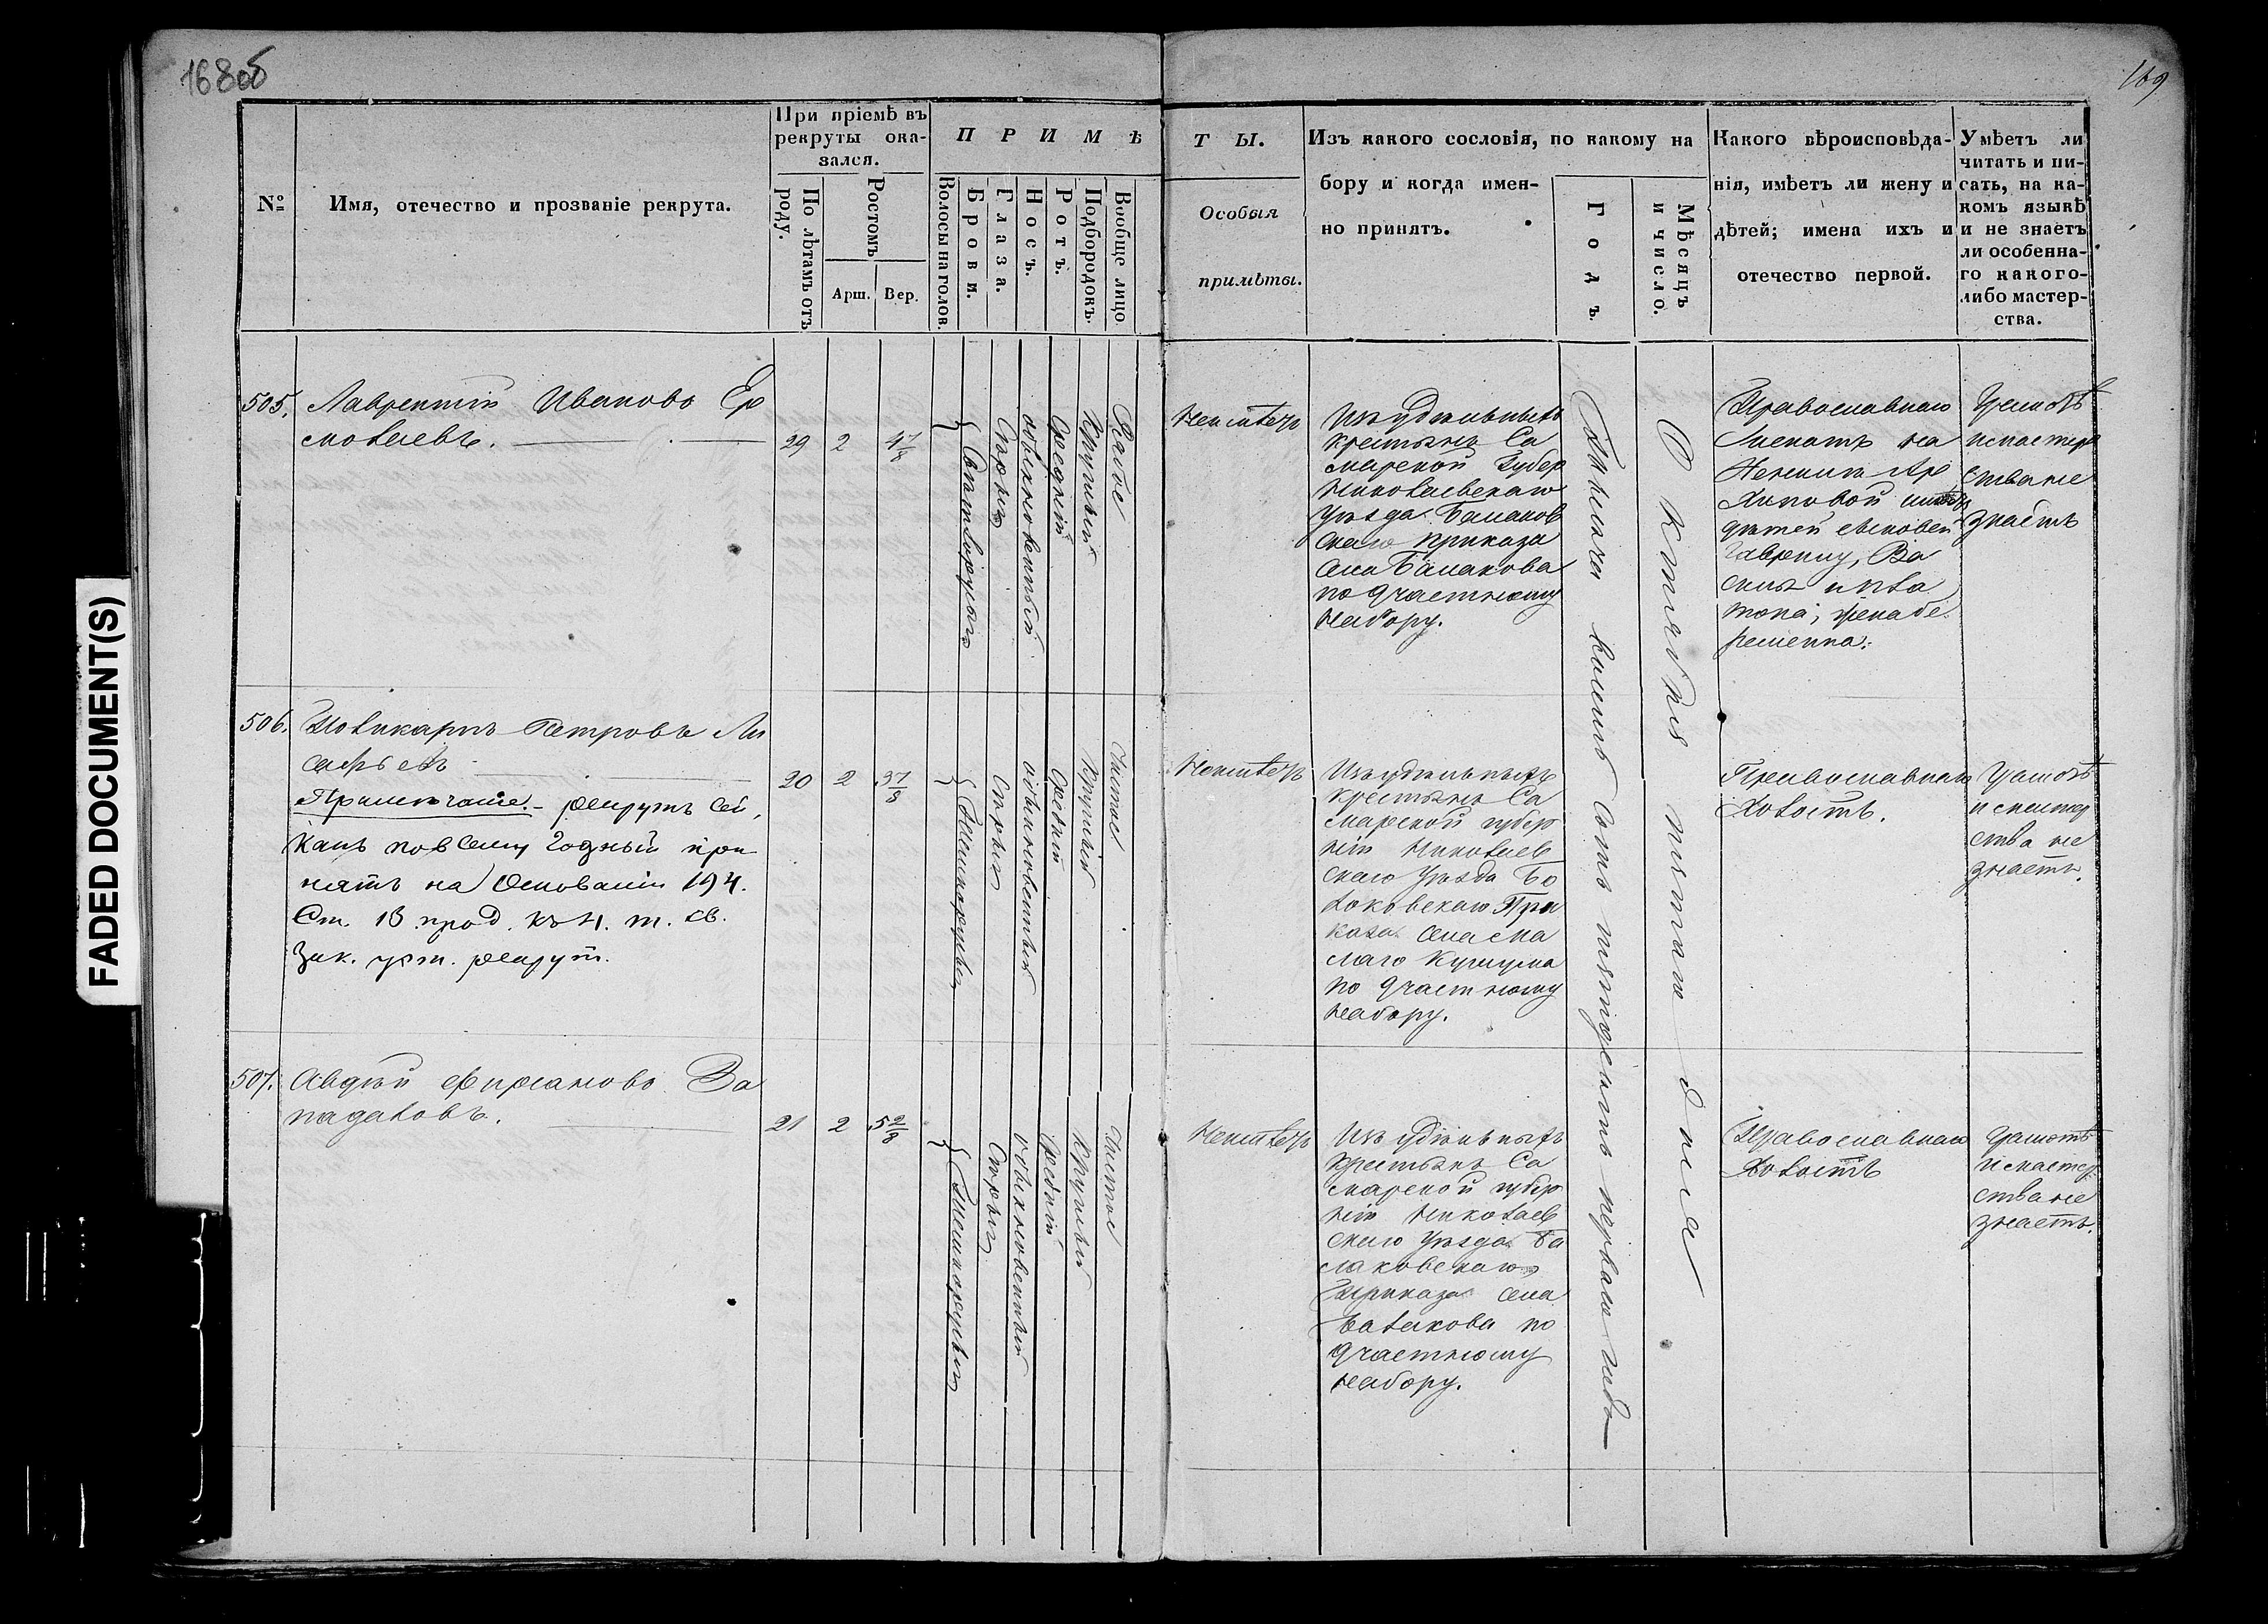 168об
169
FADED DOCUMENT(S)
№
Имя, отечество и прозваніе рекрута.
При пріемѣ въ
рекруты ока-
зался.
По лѣтамъ отъ
роду.
Ростомъ
Арш.
Вер.
ПРИМѢ
Волосы на голов.
Брови.
Глаза.
Носъ.
Ротъ.
Подбородокъ.
Вообще лицо.
ТЫ.
Особыя
примѣты.
Изъ какого сословія, по какому на
бору и когда имен-
но принятъ.
Годъ.
Мѣсяцъ
и число.
Какого вѣроисповѣда-
нія, имѣетъ ли жену и
дѣтей; имена ихъ и
отечество первой.
Умѣетъ ли
читать и пи-
сать, на ка-
комъ языкѣ
и не знаетъ
ли особенна-
го какого-
либо мастер-
ства.
505.
Лаврентій Ивановъ Ер
молаевъ.
29
2
4 7/8
Светлорусыя
Сѣрыя
обыкновенный
Средній
Круглый
Рябое
Неимѣетъ
Изъ удѣльныхъ
крестьянъ Са
марской Губер
Николаевскаго
Уѣзда Балаков
скаго Приказа
Села Балакова
по участному
набору.
Православнаго
Женатъ на
Ар
хиповой имѣетъ
дѣтей сыновей
Гаврилу, Ва
силья и
жена бе
ременна.
Грамотѣ
и мастер
ства не
знаетъ
506.
Поликарпъ Петровъ Ли
сафьевъ
Примѣчаніе. - рекрутъ сей,
какъ повсему годный при
нятъ на основаніи 194.
Ст. 13 прод. къ 4. т. св.
Зак. уст. рекрут.
20
2
3 7/8
Темнорусыя
Сѣрыя
обыкновенный
Средній
Круглый
Чистое
Неимѣетъ
Изъ удѣльныхъ
крестьянъ Са
марской губер
ніи Николаев
скаго Уѣзда Ба
лаковскаго При
каза Села Ма
лаго Кушума
по участному
набору.
Православнаго
Холостъ.
Грамотѣ
и мастер
ства не
знаетъ.
507.
Авдѣй Фирсановъ За
падаловъ.
21
2
5 2/8
Темнорусыя
Сѣрыя
обыкновенный
Средній
Круглый
Чистое
Неимѣетъ
Изъ удѣльныхъ
крестьянъ Са
марской губер
ніи Николаев
скаго Уѣзда Ба
лаковскаго
Приказа Села
Балакова по
участному
набору.
Тысяча восемь сотъ пятьдесятъ перваго года
Октября пятаго дня
Православнаго
Холостъ
Грамотѣ
и мастер
ства не
знаетъ.